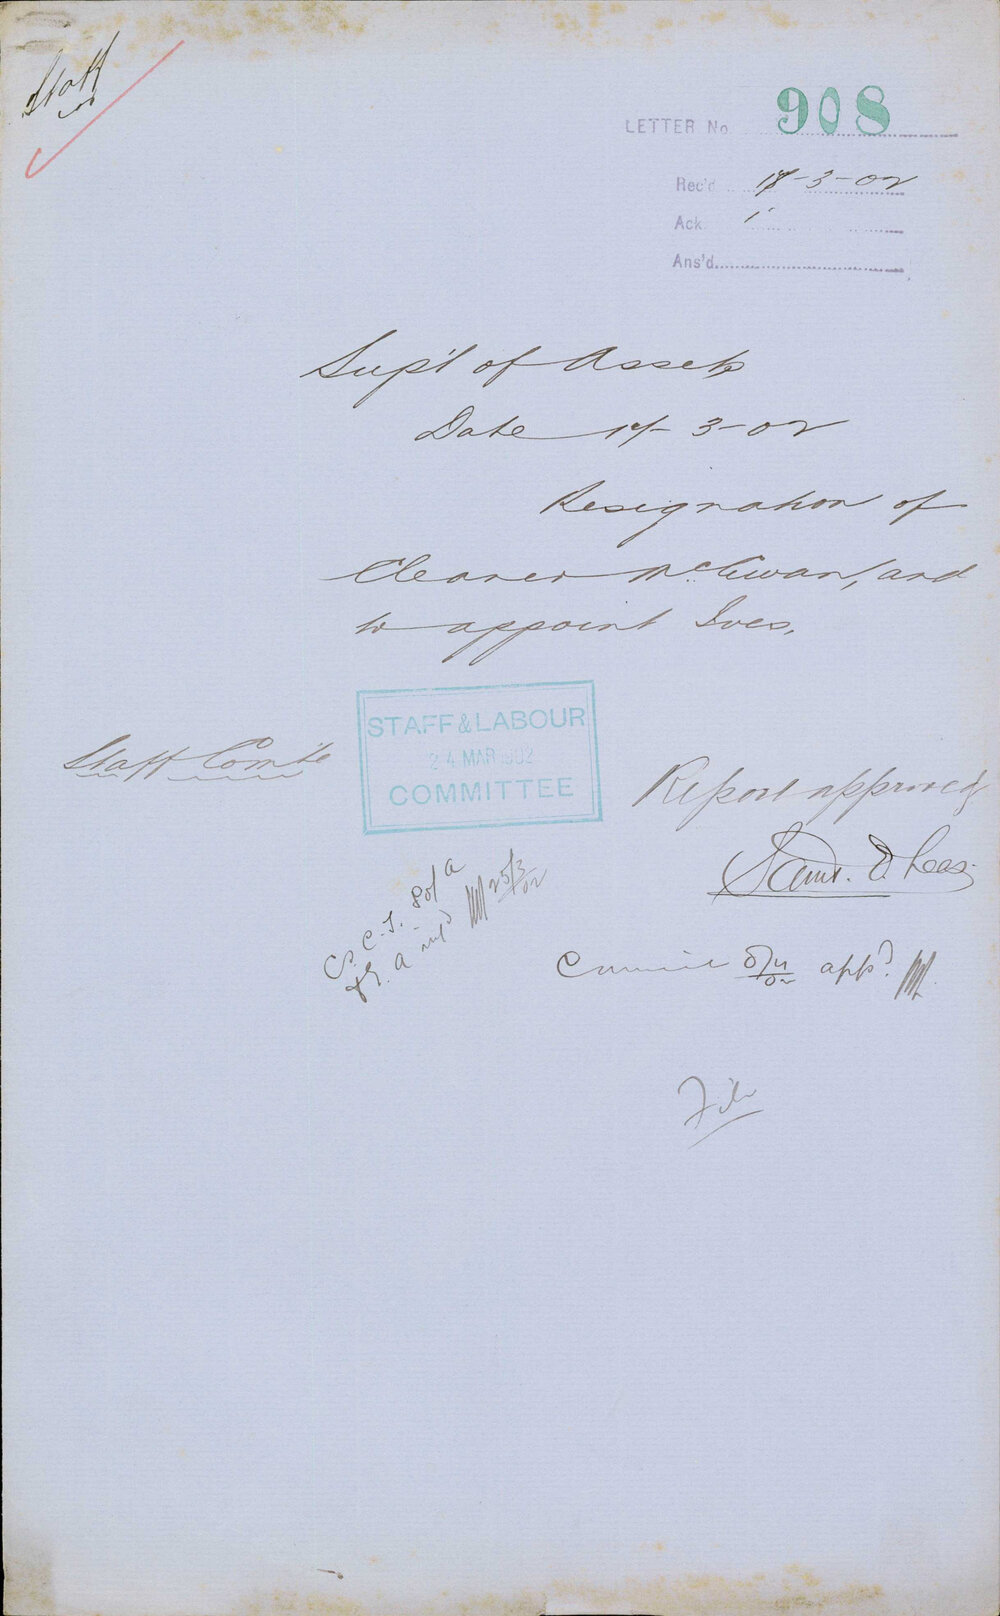 Staff
LETTER No. 908
Rec'd 18-3-02
Ack "
Ans'd
Sup't of Assets
Date 17-3-02
Resignation of
Cleaner McEwan, and
to appoint Ives.
Staff Com'te
STAFF & LABOUR
24 MAR 1902
COMMITTEE
Report approved
Saml. E. Lees
C. C. S. S of A
& G. A inf'd 25/3/02
Council 8/4/02 app'd
File